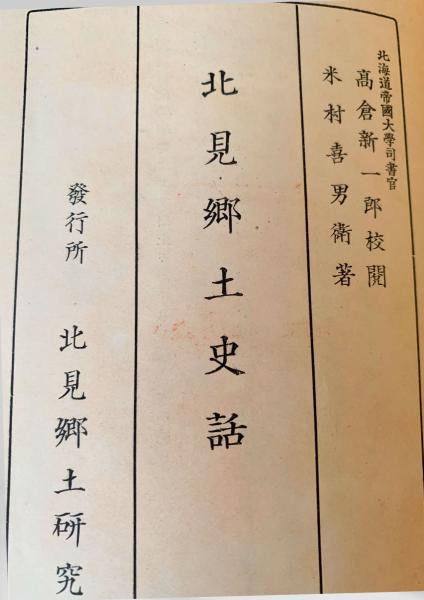 北海道帝國大學司書官
高倉新一郎校閲
米村喜男衛著
北見郷土史話
發行所 北見郷土硏究